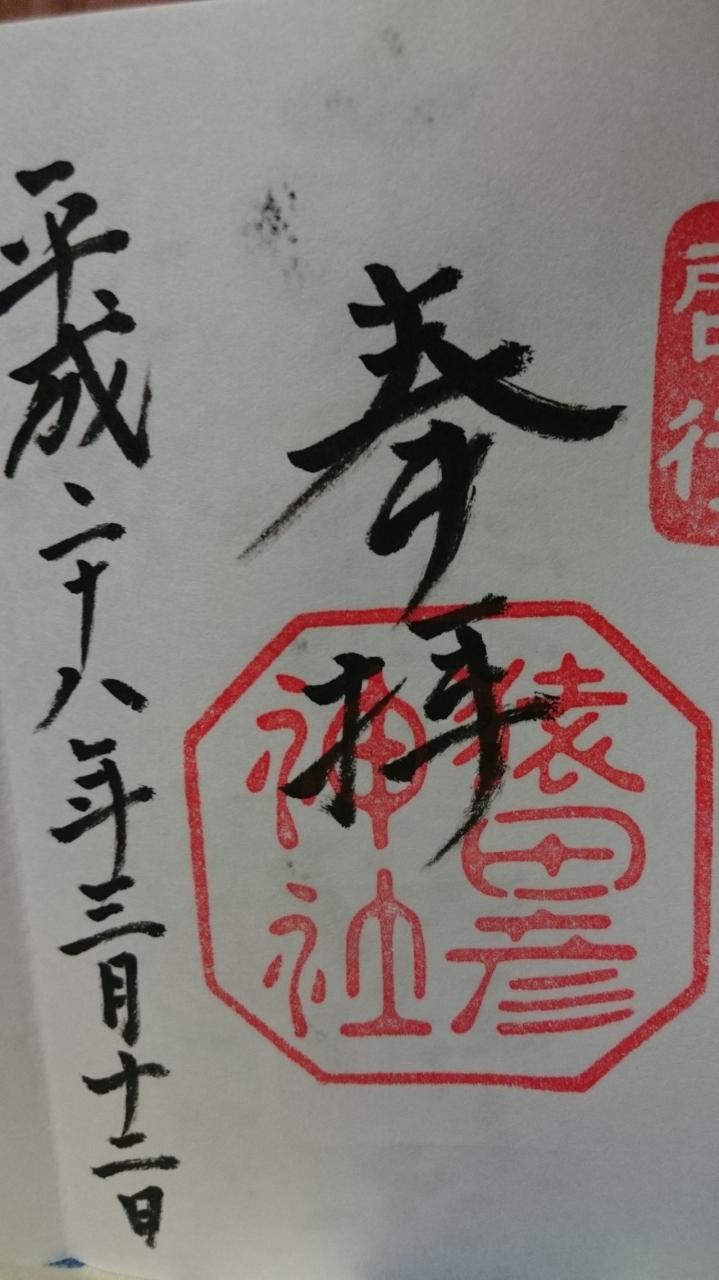 啓行
奉拝
猿田彦
神社
平成二十八年三月十二日